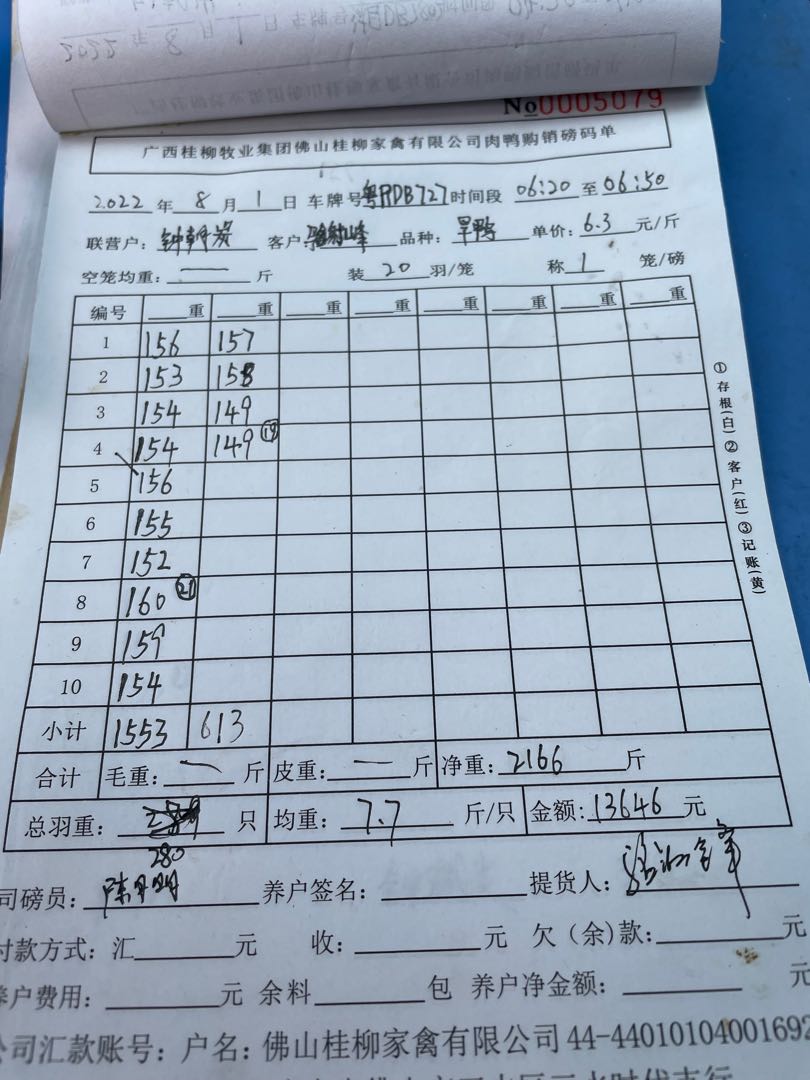 2022 年 8 月 1 日 车牌号
No0005079
广西桂柳牧业集团佛山桂柳家禽有限公司肉鸭购销磅码单
2022 年 8 月 1 日 车牌号粤RDB727时间段 06:20 至 06:50
联营户： 客户 峰 品种：旱鸭 单价：6.3 元/斤
空笼均重：一 斤 装 20 羽/笼 称 1 笼/磅
编号 重 重 重 重 重 重 重 重
1 156 157
2 153 158
3 154 149
4 154 149 ⑲
5 156
6 155
7 152
8 160 ㉑
9 159
10 154
小计 1553 613
合计 毛重：一 斤 皮重：一 斤 净重：2166 斤
总羽重： 只 均重：7.7 斤/只 金额：13646 元
280
司磅员：陈 明 养户签名： 提货人：
付款方式：汇 元 收： 元 欠（余）款： 元
养户费用： 元 余料 包 养户净金额： 元
公司汇款账号：户名：佛山桂柳家禽有限公司 44-44010104001692
①存根(白)②客户(红)③记账(黄)